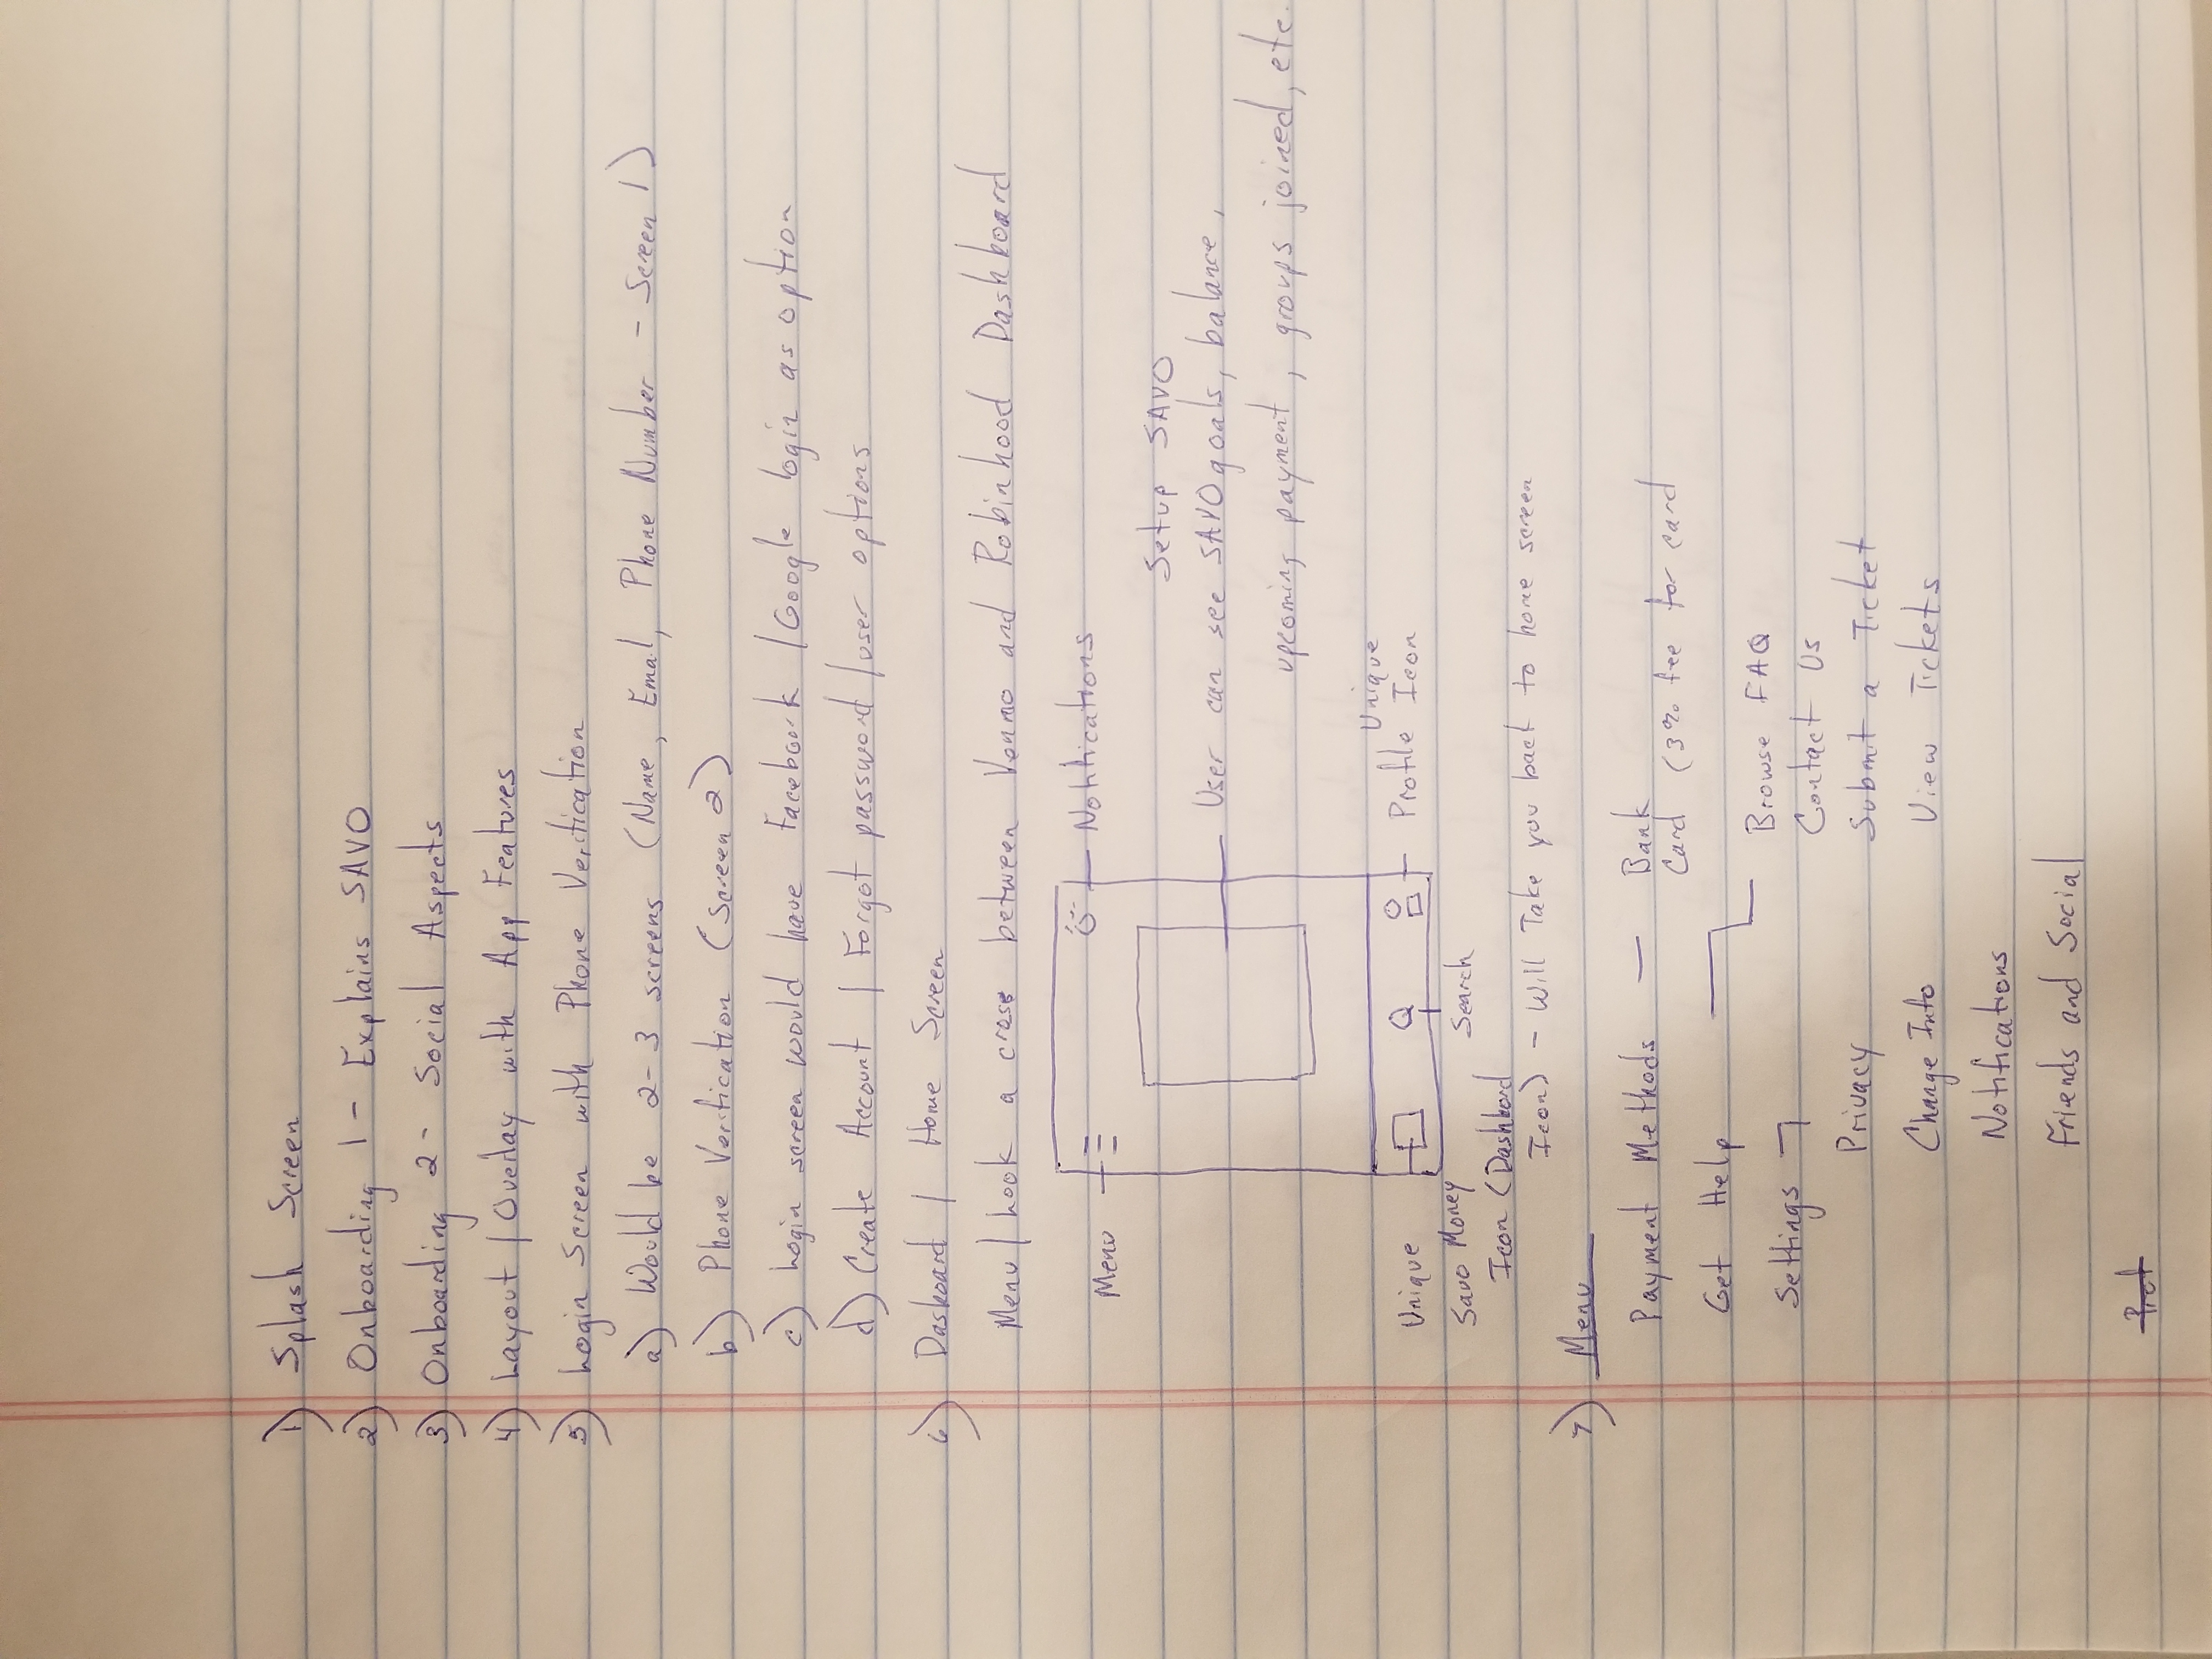 1) Splash Screen
2) Onboarding 1 - Explains SAVO
3) Onboarding 2 - Social Aspects
4) Layout / Overlay with App Features
5) Login Screen with Phone Verification
a) Would be 2-3 screens (Name, Email, Phone Number - Screen 1)
b) Phone Verification (Screen 2)
c) Login screen would have Facebook / Google login as option
d) Create Account / Forgot password / user options
6) Dasboard / Home Screen
Menu / Look a cross between Venmo and Robinhood Dashboard
Menu
Notifications
Setup SAVO
User can see SAVO goals, balance,
upcoming payment, groups joined, etc.
Unique
Profile Icon
Unique
Savo Money
Search
Icon (Dashbord
Icon) - Will Take you back to home screen
7) Menu
Payment Methods — Bank
Card (3% fee for card
Get Help
Browse FAQ
Settings
Contact Us
Privacy
Submit a Ticket
Change Info
View Tickets
Notifications
Friends and Social